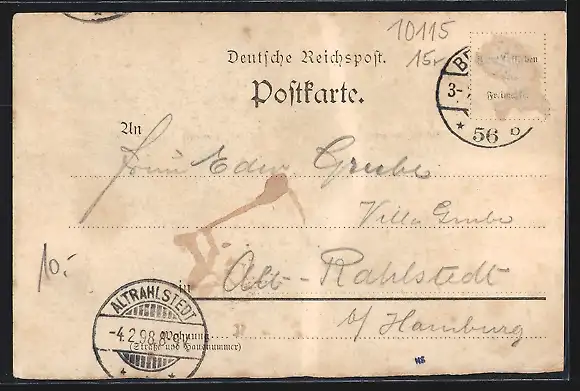 10115
15,-
Deutsche Reichspost.
Postkarte.
BE
3-
56
An
Eden Grube
Villa Grube
10.-
in Alt-Rahlstedt
b/ Hamburg
ALTRAHLSTEDT
-4.2.98.8-9
Wohnung
(Straße und Hausnummer)